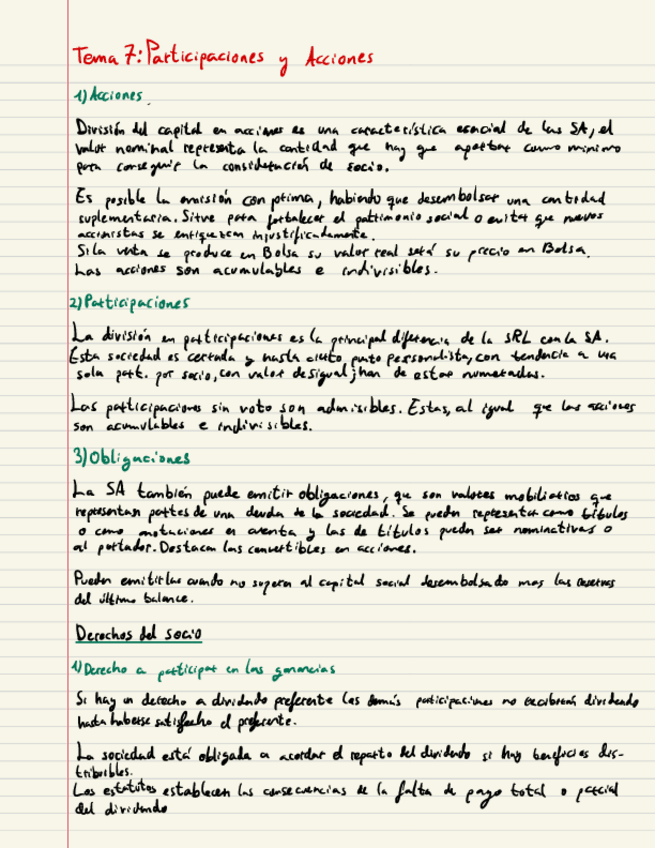 Tema 7: Participaciones y Acciones
1) Acciones.
División del capital en acciones es una característica esencial de las SA, el
valor nominal representa la cantidad que hay que aportar como mínimo
para conseguir la consideración de socio.
Es posible la emisión con prima, habiendo que desembolsar una cantidad
suplementaria. Sirve para fortalecer el patrimonio social o evitar que nuevos
accionistas se enriquezcan injustificadamente.
Si la venta se produce en Bolsa su valor real será su precio en Bolsa.
Las acciones son acumulables e indivisibles.
2) Participaciones
La división en participaciones es la principal diferencia de la SRL con la SA.
Esta sociedad es cerrada y hasta cierto punto personalista, con tendencia a una
sola part. por socio, con valor desigual y han de estar numeradas.
Las participaciones sin voto son admisibles. Estas, al igual que las acciones
son acumulables e indivisibles.
3) Obligaciones
La SA también puede emitir obligaciones, que son valores mobiliarios que
representan partes de una deuda de la sociedad. Se pueden representar como títulos
o como anotaciones en cuenta y las de títulos pueden ser nominativas o
al portador. Destacan las convertibles en acciones.
Pueden emitirlas cuando no supera al capital social desembolsado mas las reservas
del último balance.
Derechos del socio
1) Derecho a participar en las ganancias
Si hay un derecho a dividendo preferente las demás participaciones no recibirán dividendo
hasta haberse satisfecho el preferente.
La sociedad está obligada a acordar el reparto del dividendo si hay beneficios dis-
tribuibles.
Los estatutos establecen las consecuencias de la falta de pago total o parcial
del dividendo